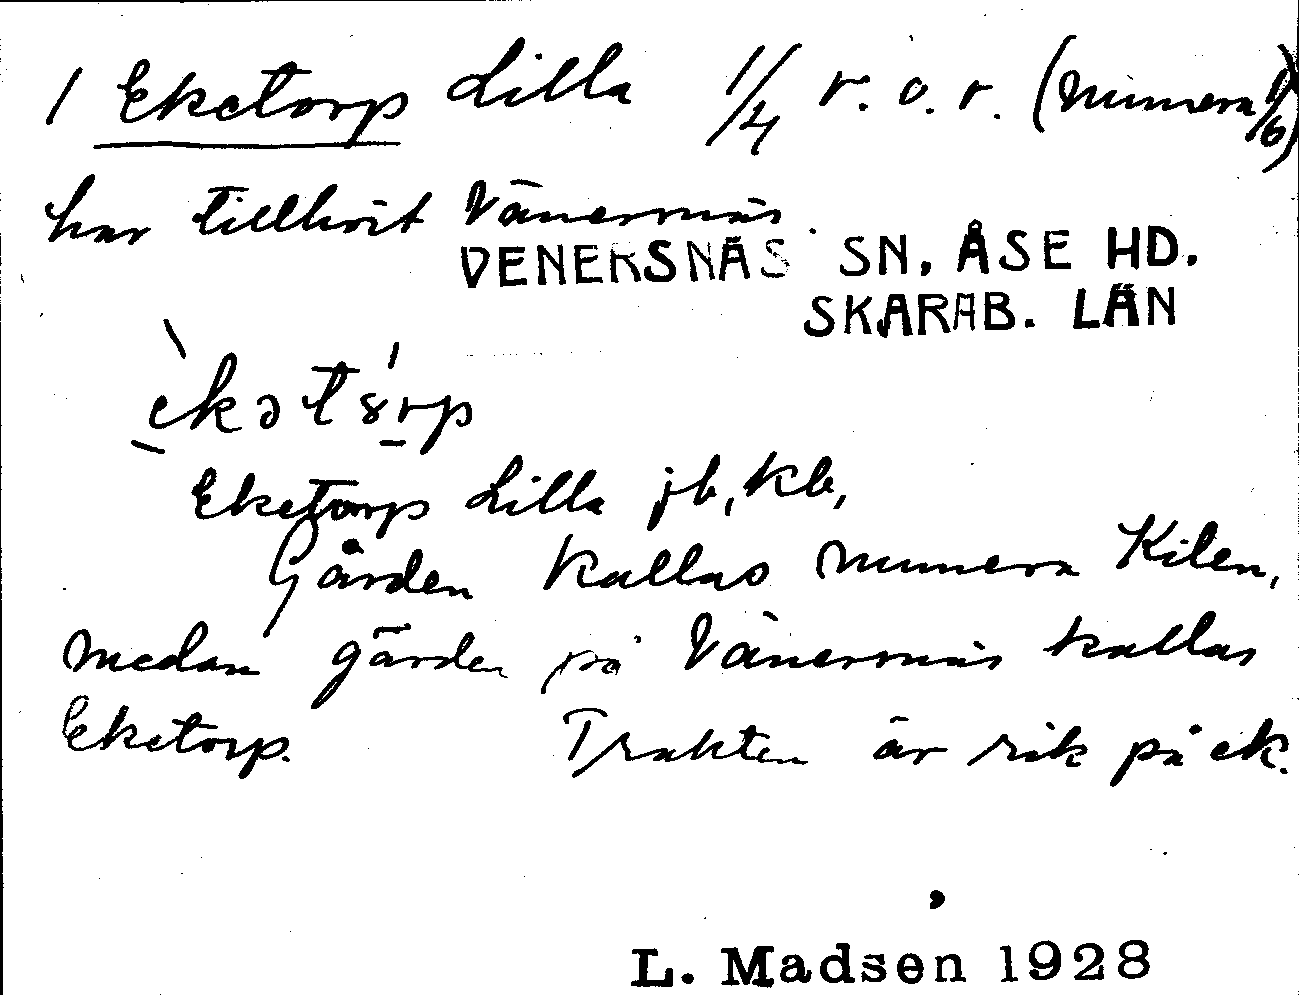 1 Eketorp Lilla 1/4 r. o. r. (numera 1/6)
har tillhört Vänersnäs
VENERSNÄS SN. ÅSE HD.
SKARAB. LÄN
Eketorp Lilla jb, kb,
Gården kallas numera Kilen,
medan gården på Vänersnäs kallas
Eketorp. Trakten är rik på ek.
L. Madsen 1928